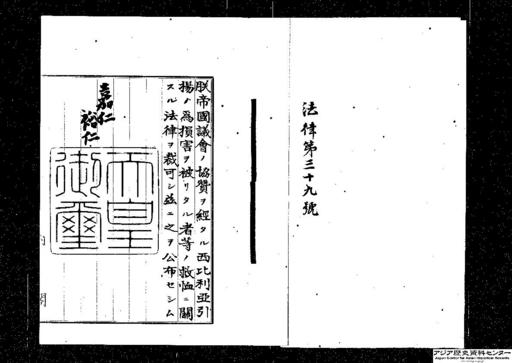 法律第三十九號
朕帝國議會ノ協贊ヲ經タル西比利亞引
揚ノ爲損害ヲ被リタル者等ノ救恤ニ關
スル法律ヲ裁可シ茲ニ之ヲ公布セシム
嘉仁
裕仁
天皇
御璽
内閣
アジア歴史資料センター
Japan Center for Asian Historical Records